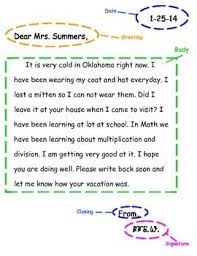 Date
1-25-14
Dear Mrs. Summers,
Greeting
Body
It is very cold in Oklahoma right now. I
have been wearing my coat and hat everyday. I
lost a mitten so I can not wear them. Did I
leave it at your house when I came to visit? I
have been learning at lot at school. In Math we
have been learning about multiplication and
division. I am getting very good at it. I hope
you are doing well. Please write back soon and
let me know how your vacation was.
Closing
From,
Signature